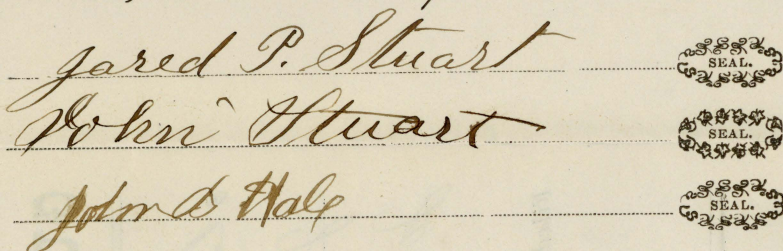 Jared P. Stuart SEAL.
John Stuart SEAL.
John D Hale SEAL.